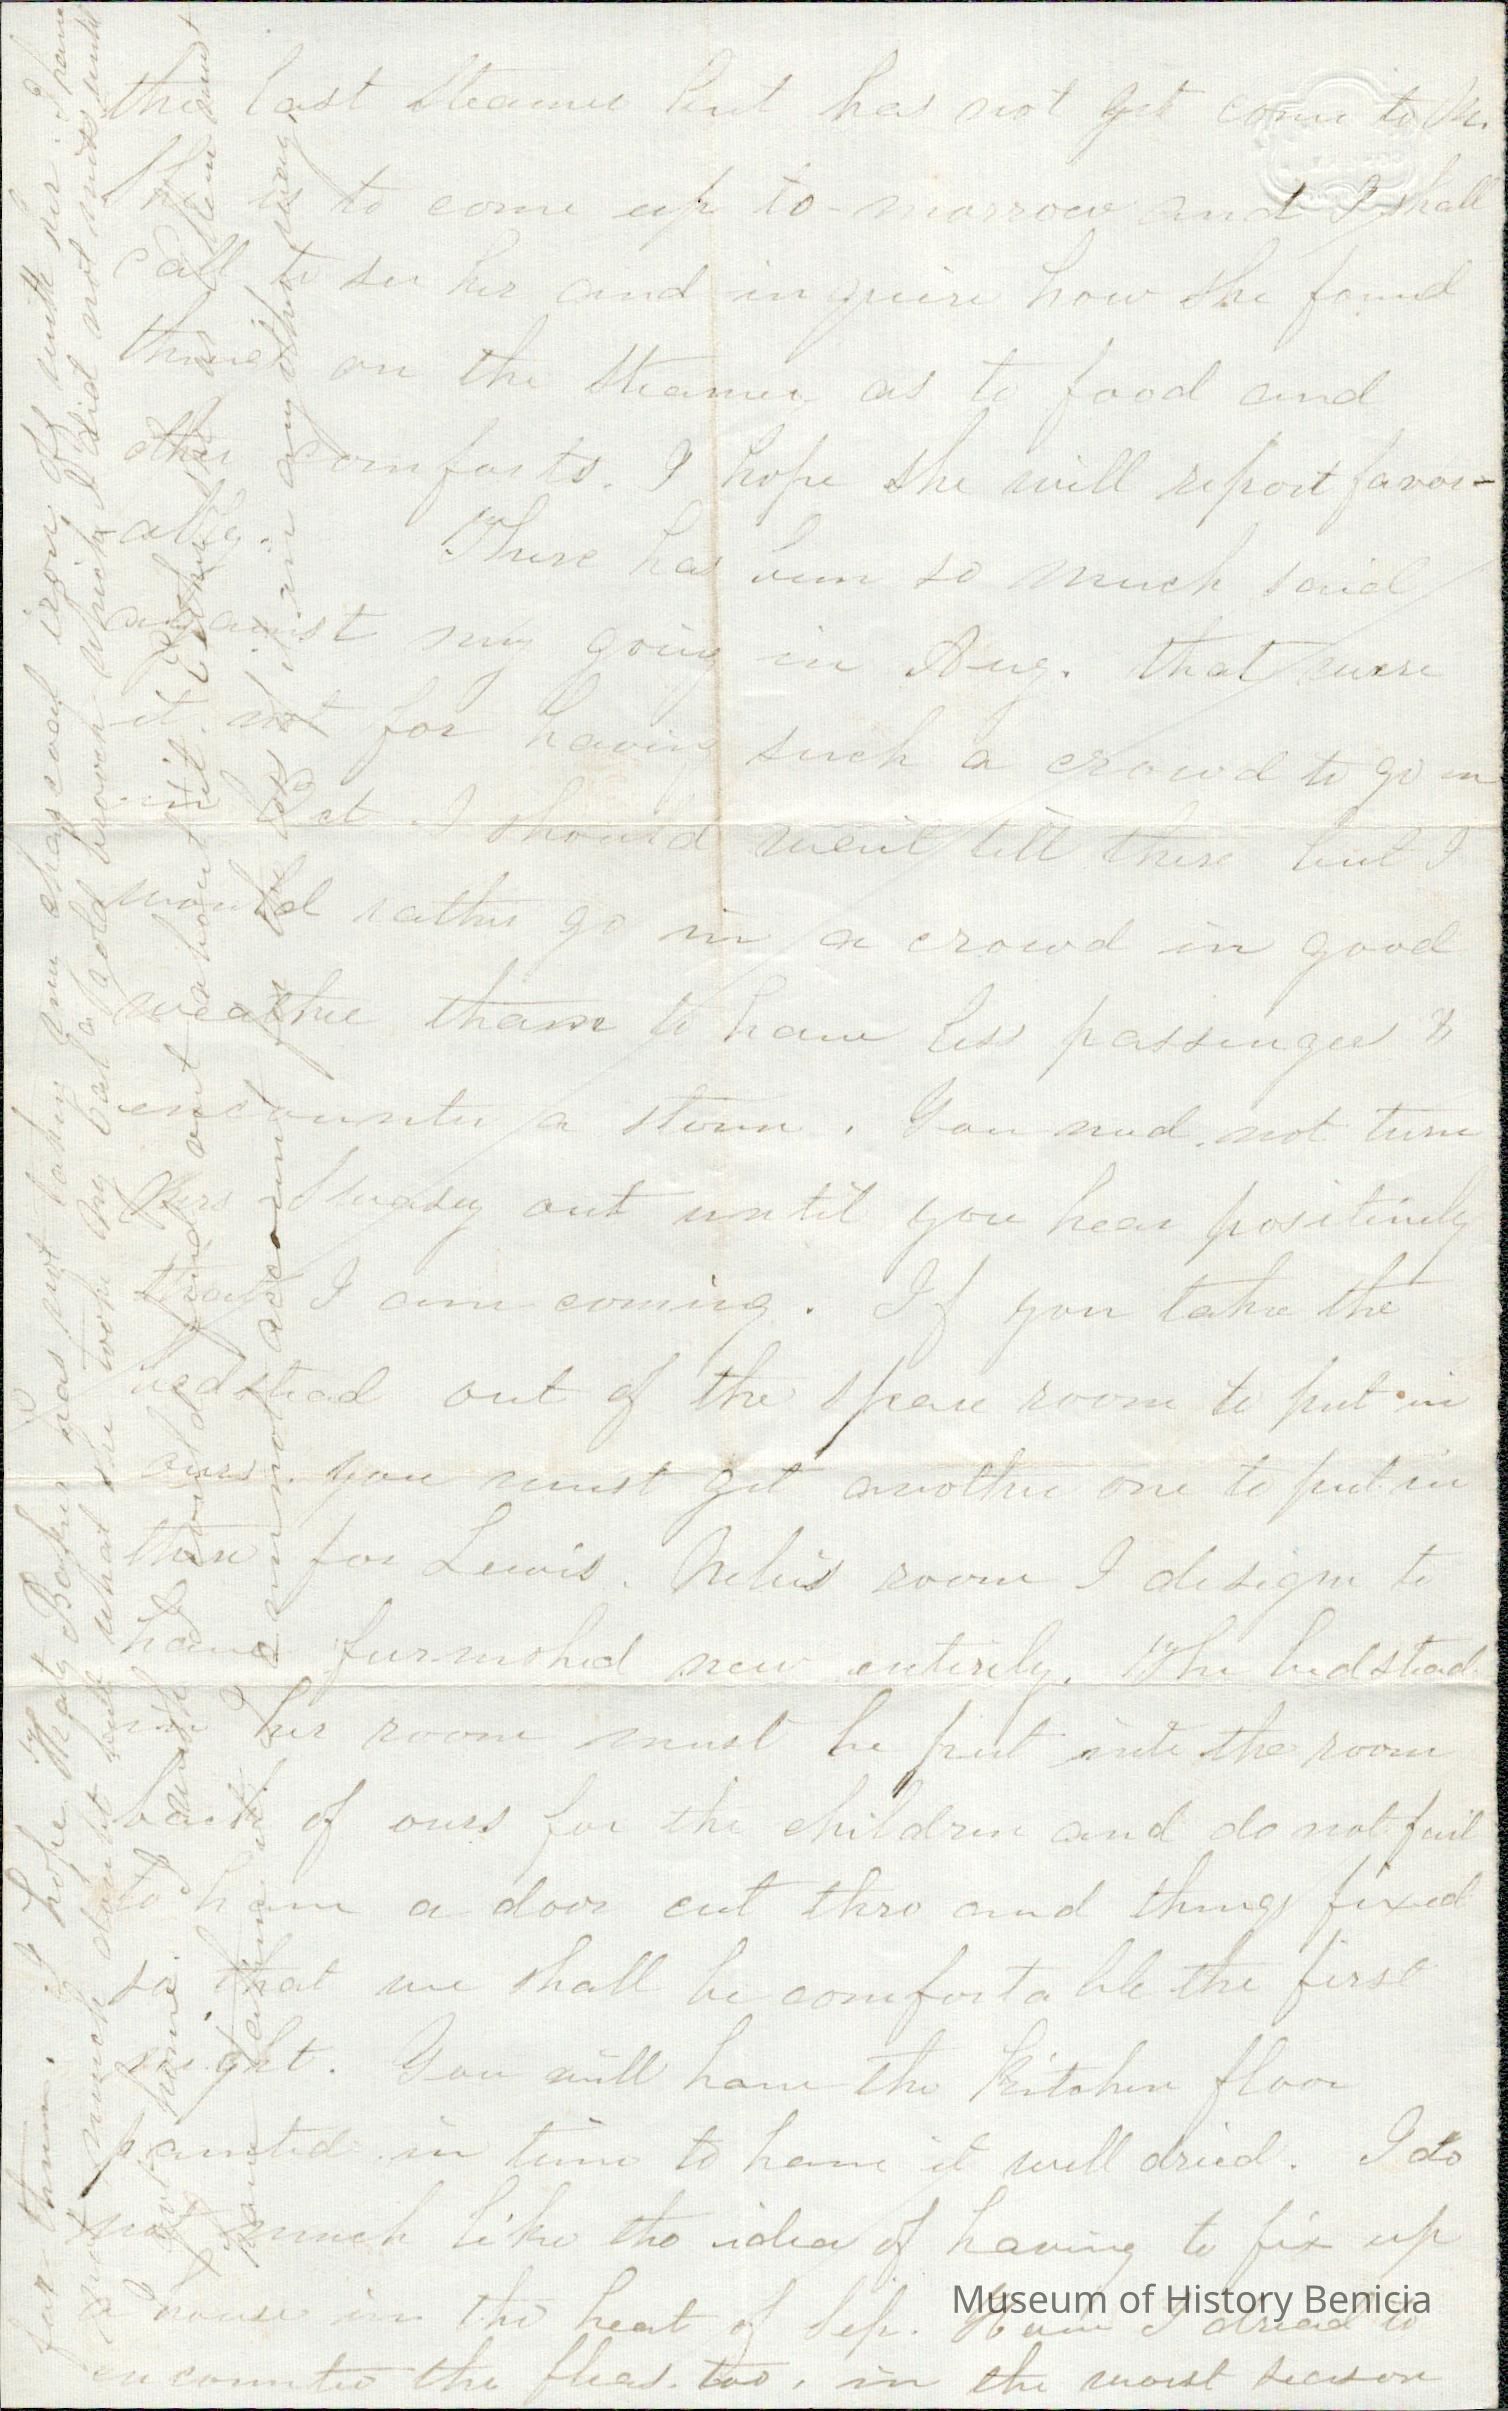 the last Steamer but has not yet come to
She is to come up to-morrow and I shall
call to see her and inquire how she found
things on the Steamer, as to food and
other comforts. I hope she will report favor-
ably. There has been so much said
against my going in Aug. that were
it not for having such a crowd to go in
in Oct. I should wait till then but I
would rather go in a crowd in good
weather than to have less passengers &
encounter a storm. You need not turn
Mrs out until you hear positively
that I am coming. If you take the
bedstead out of the spare room to put in
ours. you must get another one to put in
there for Lewis. room I design to
have furnished new entirely. The bedstead
in her room must be put into the room
back of ours for the children and do not fail
to have a door cut thro and things fixed
so that we shall be comfortable the first
night. You will have the Kitchen floor
painted in time to have it well dried. I do
not much like the idea of having to fix up
a house in the heat of Sep. How I dread to
encounter the fleas, too, in the worst season
for them. I hope Mary Baker has not taken any charcoal iron off with her. I have
not much doubt but what she took my hat a gold brown which I did not miss until
I got home. I wish I could find out about it.
I cannot account for the loss of it in any other way.
Museum of History Benicia